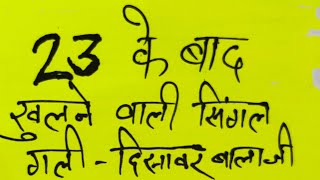 23 के बाद
खुलने वाली सिंगल
गली - दिसावर बालाजी